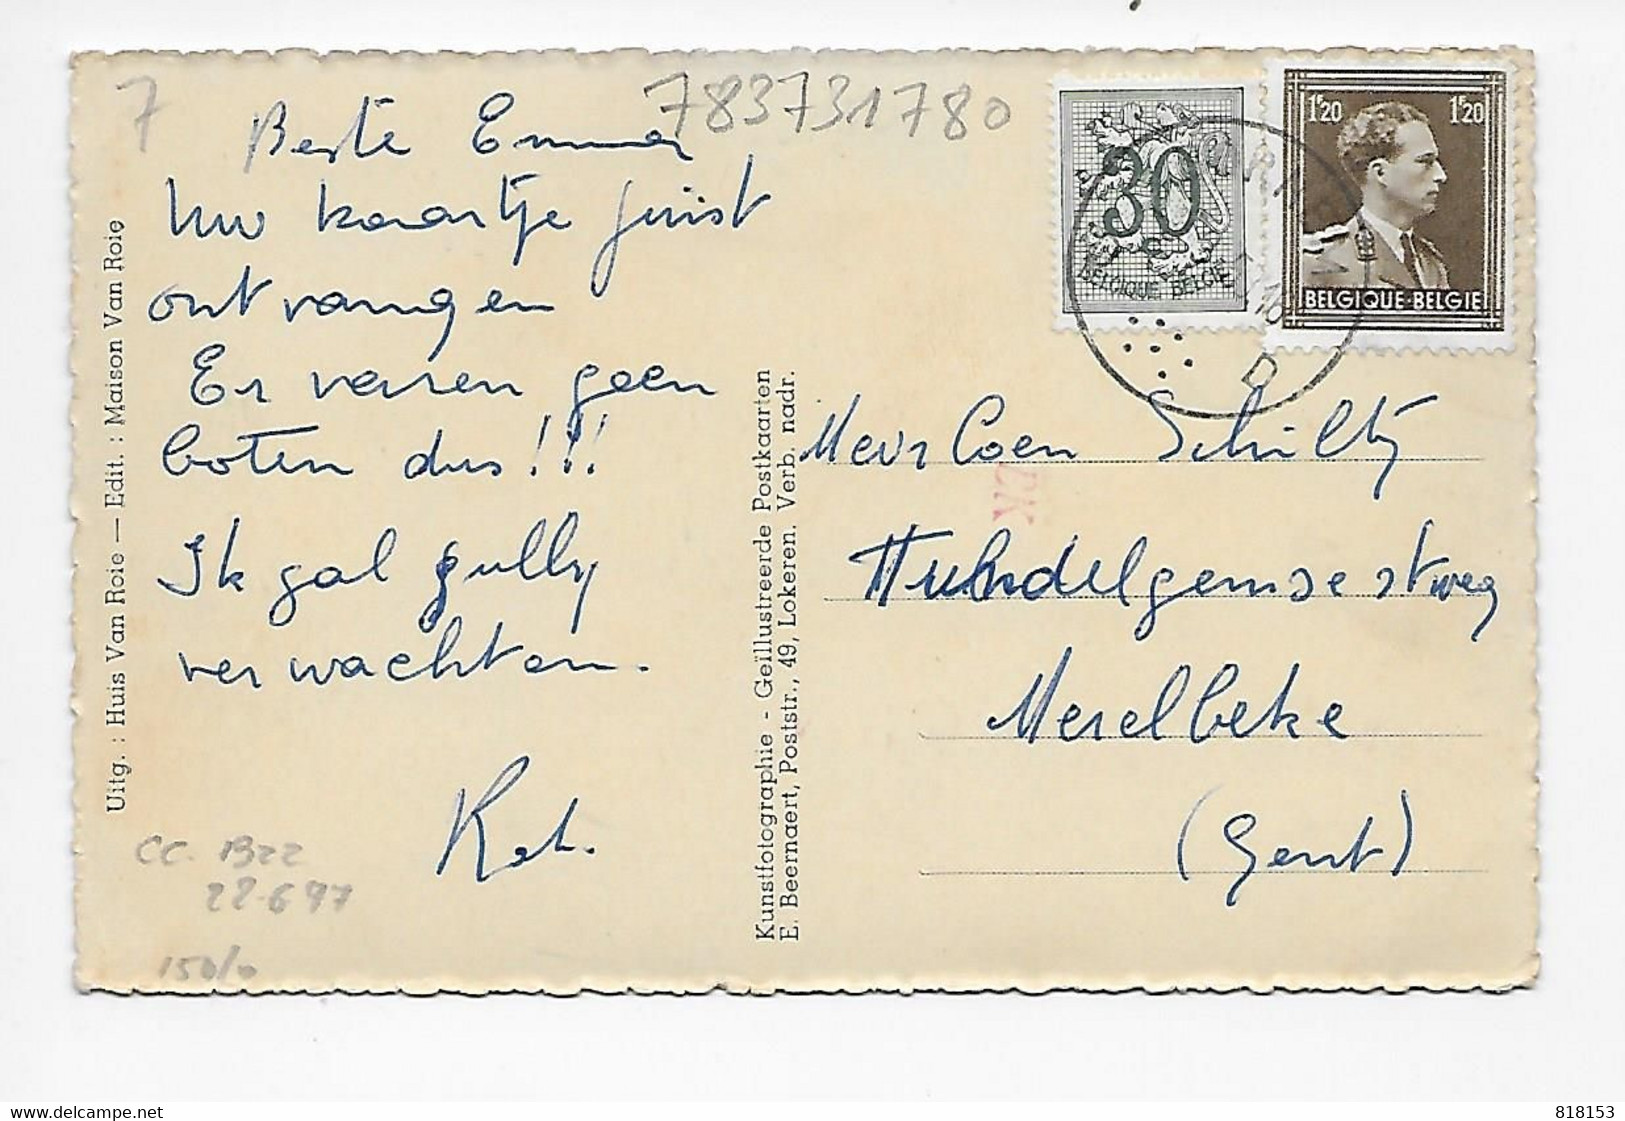 7
783731780
Beste Emma
Uw kaartje juist
ontvangen
Er varen geen
boten dus !!!
Ik zal jully
verwachten.
Uitg. : Huis Van Roie — Edit. : Maison Van Roie
CC. B22
22-6 97
150/0
Kunstfotographie - Geïllustreerde Postkaarten
E. Beernaert, Poststr., 49, Lokeren. Verb. nadr.
30
BELGIQUE BELGIE
1F20 1F20
BELGIQUE-BELGIE
D
Mevr Coen Schilty
Hundelgemsestweg
Merelbeke
(Gent)